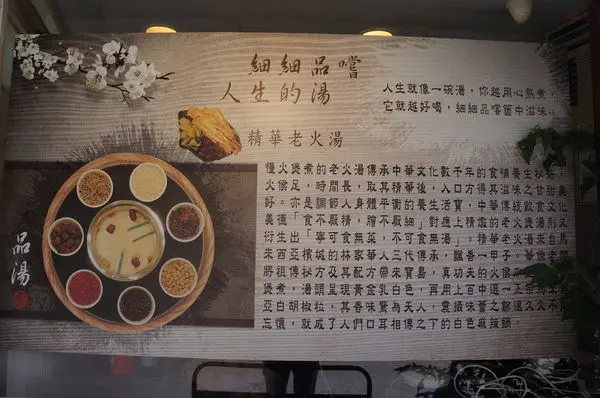 細細品嚐
人生的湯
人生就像一碗湯,你越用心熬煮,
它就越好喝,細細品嚐箇中滋味。
精華老火湯
慢火煲煮的老火湯傳承中華文化數千年的食補養生秘
火侯足,時間長,取其精華後,入口方得其滋味之甘甜美
好。亦是調節人身體平衡的養生活寶,中華傳統飲食文化
美德「食不厭精,膾不厭細」對應上精緻的老火煲湯則又
衍生出「寧可食無菜,不可食無湯」。精華老火湯來自馬
來西亞檳城的林家華人三代傳承,飄香一甲子,華
將祖傳秘方及其配方帶來寶島,真功夫的火侯
煲煮,湯頭呈現黃金乳白色,再用上百中選一正宗馬來
亞白胡椒粒,其香味驚為天人,震攝味蕾之餘還久久不
忘懷,就成了人們口耳相傳之下的白色麻辣鍋。
品湯